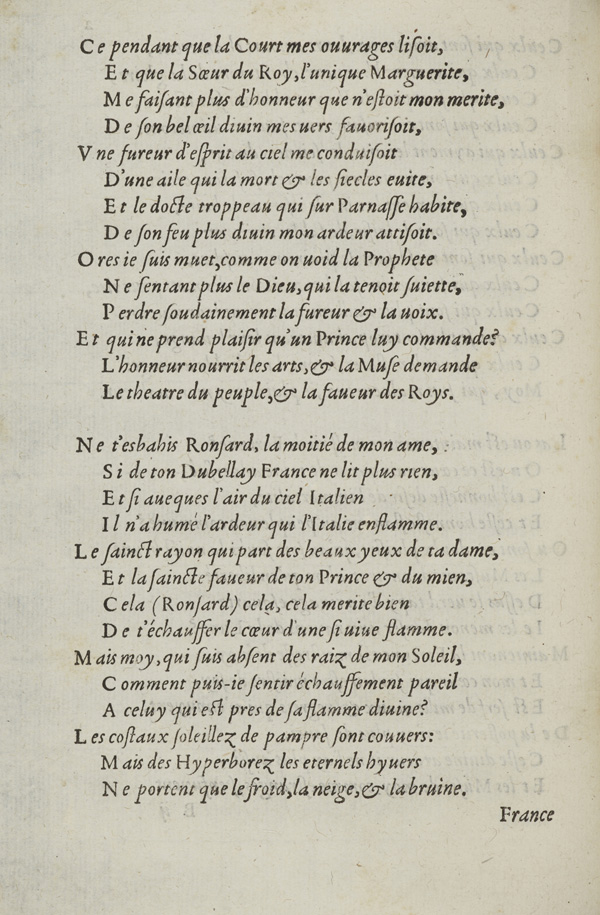 Ce pendant que la Court mes ouurages liſoit,
Et que la Sœur du Roy, l'unique Marguerite,
Me faiſant plus d'honneur que n'eſtoit mon merite,
De ſon bel œil diuin mes uers fauoriſoit,
Vne fureur d'eſprit au ciel me conduiſoit
D'une aile qui la mort & les ſiecles euite,
Et le docte troppeau qui ſur Parnaſſe habite,
De ſon feu plus diuin mon ardeur attiſoit.
Ores ie ſuis muet, comme on uoid la Prophete
Ne ſentant plus le Dieu, qui la tenoit ſuiette,
Perdre ſoudainement la fureur & la uoix.
Et qui ne prend plaiſir qu'un Prince luy commande?
L'honneur nourrit les arts, & la Muſe demande
Le theatre du peuple, & la faueur des Roys.
Ne t'esbahis Ronſard, la moitié de mon ame,
Si de ton Dubellay France ne lit plus rien,
Et ſi aueques l'air du ciel Italien
Il n'a humé l'ardeur qui l'Italie enflamme.
Le ſainct rayon qui part des beaux yeux de ta dame,
Et la ſaincte faueur de ton Prince & du mien,
Cela (Ronſard) cela, cela merite bien
De t'échauffer le cœur d'une ſi uiue flamme.
Mais moy, qui ſuis abſent des raiz de mon Soleil,
Comment puis-ie ſentir échauffement pareil
A celuy qui eſt pres de ſa flamme diuine?
Les coſtaux ſoleillez de pampre ſont couuers:
Mais des Hyperborez les eternels hyuers
Ne portent que le froid, la neige, & la bruine.
France